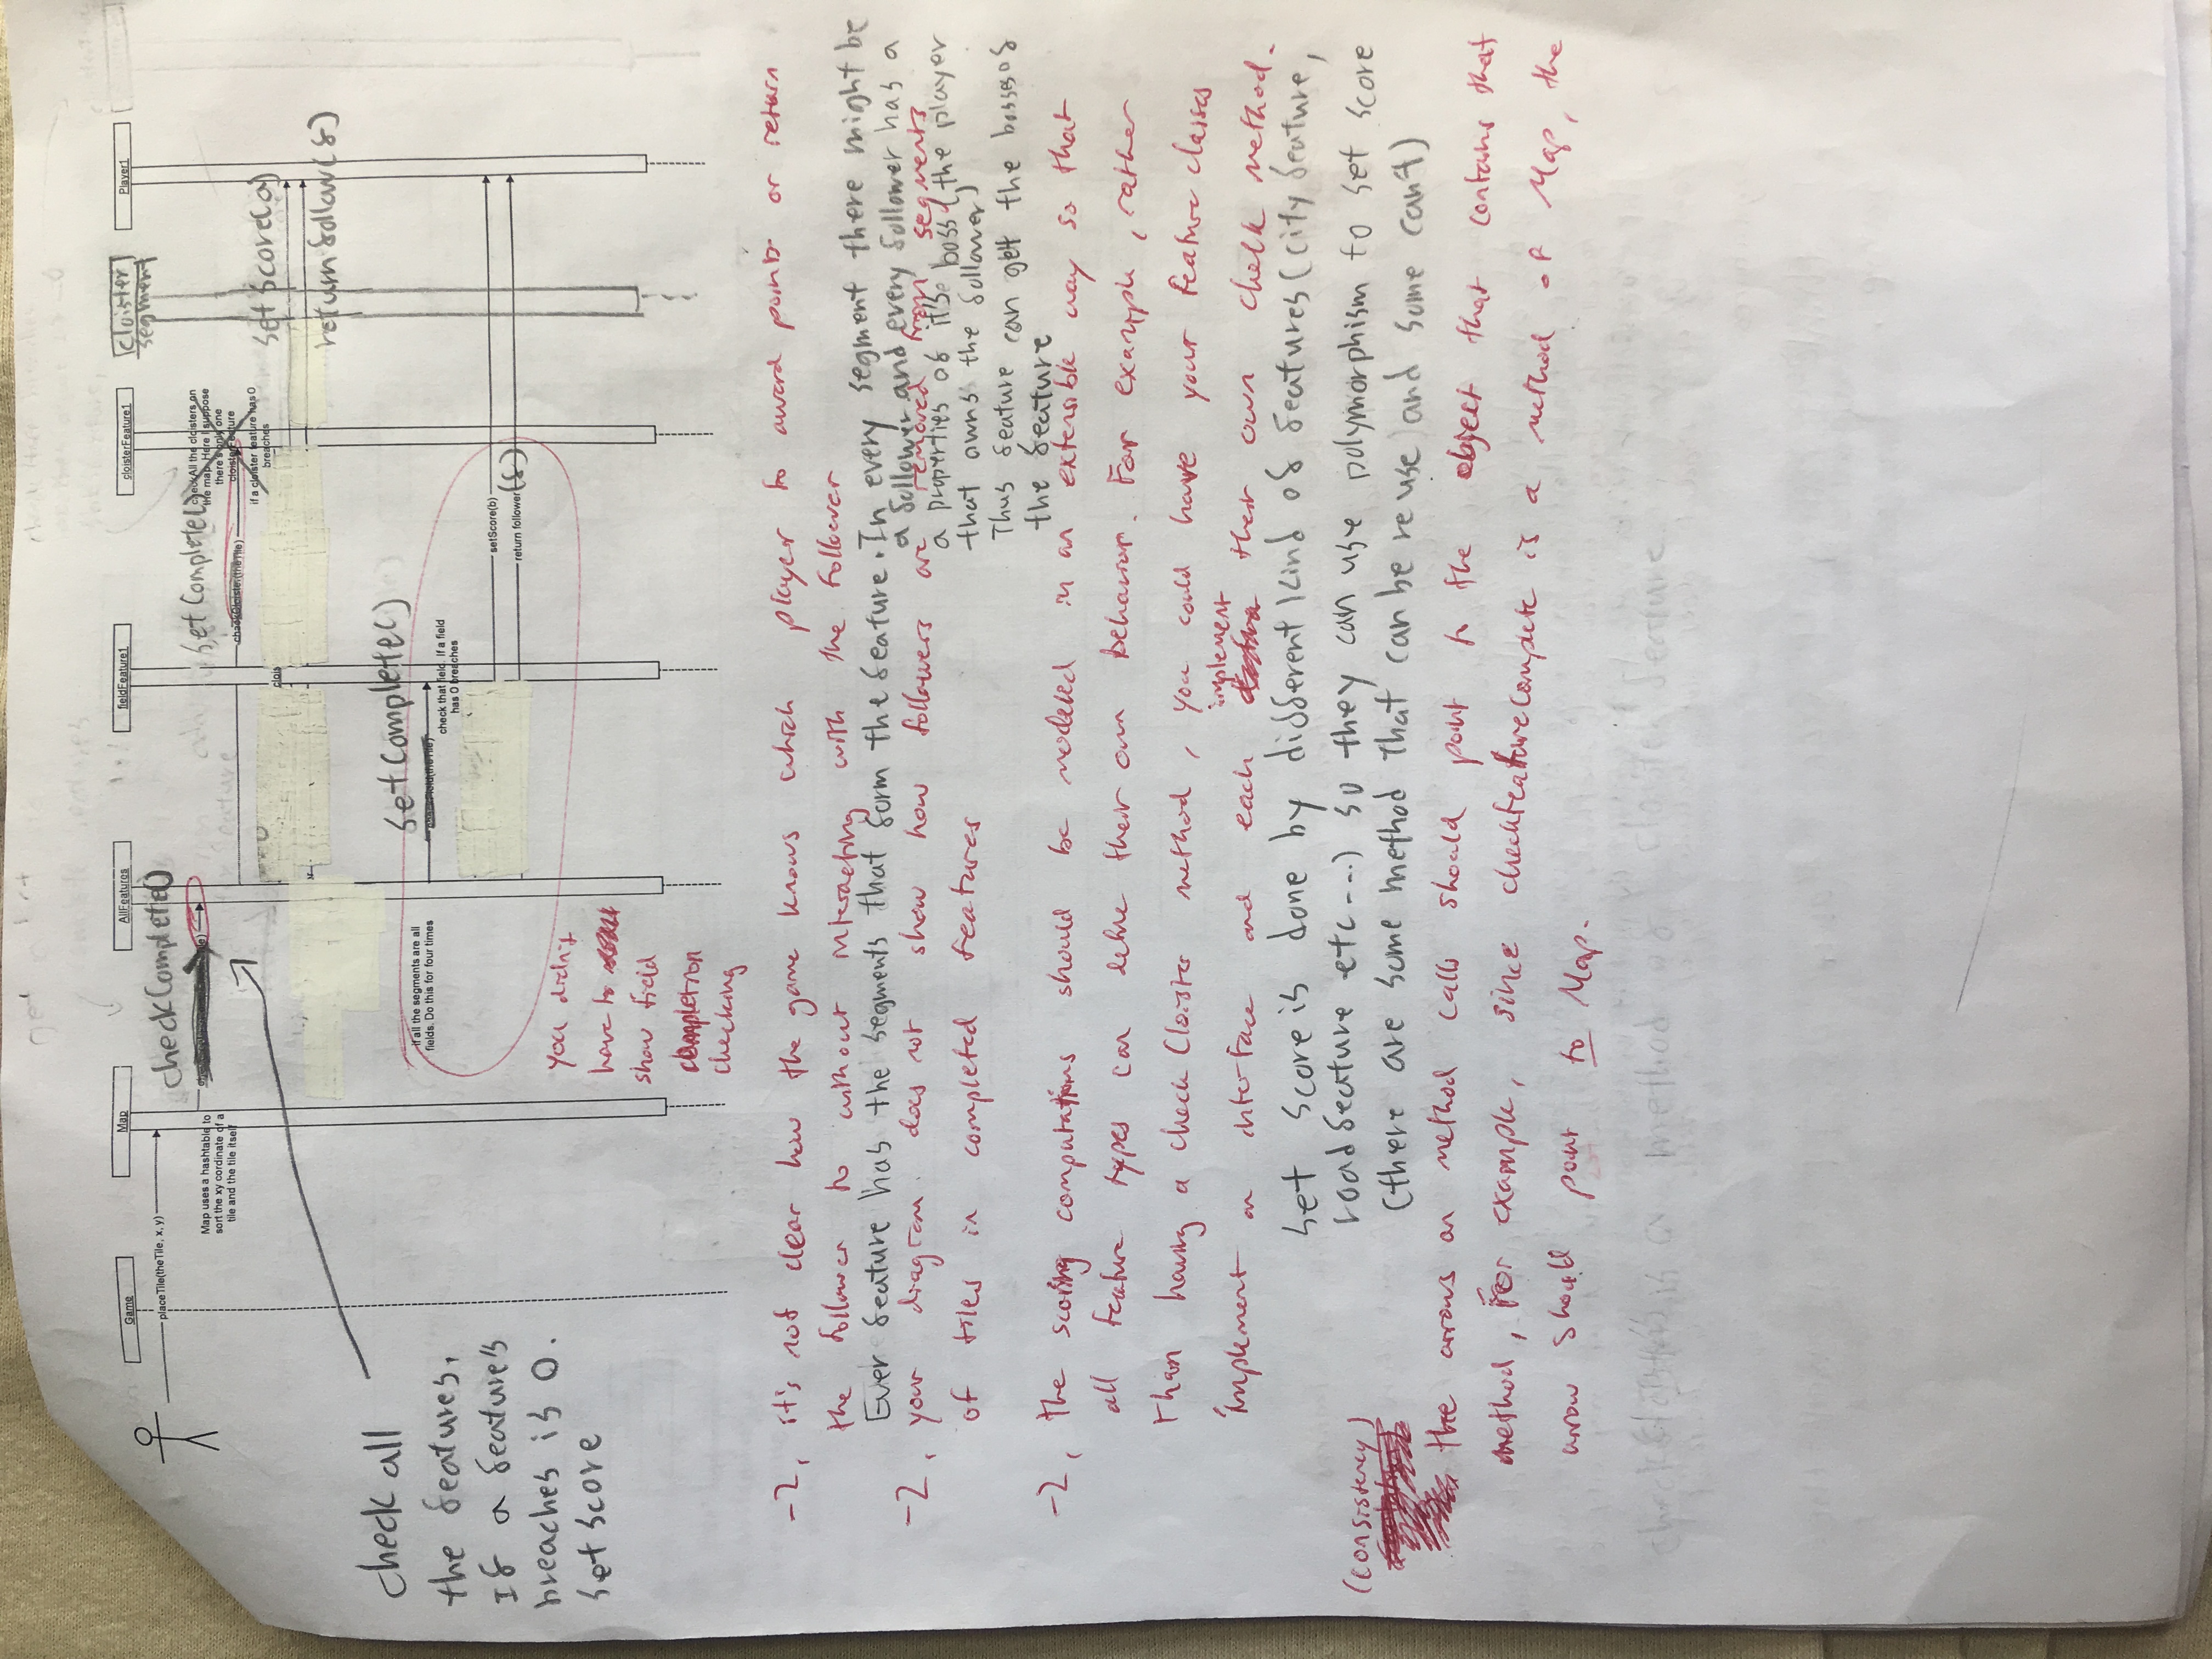 Game
Map
AllFeatures
fieldFeature1
cloisterFeature1
cloister
segment
Player1
placeTile(theTile, x, y)
checkComplete()
Map uses a hashtable to
sort the xy cordinate of a
tile and the tile itself
setComplete()
checkAll the cloisters on
the map. Here I suppose
there's only one
cloisterFeature
checkCloister(theTile)
if a cloister feature has 0
breaches
clois
setScore(a)
return follow(f)
check all
the features,
If a feature's
breaches is 0.
set score
setComplete()
if all the segments are all
fields. Do this for four times
checkField(theTile)
check that field. If a field
has 0 breaches
setScore(b)
return follower (f)
you didn't
have to
show field
completion
checking
-2, it's not clear how the game knows which player to award points or return
the follower to without interacting with the follower
Ever feature has the segments that form the feature. In every segment there might be
a follower and every follower has a
a properties of it's boss (the player
that owns the follower)
Thus feature can get the bosses of
the feature
-2, your diagram does not show how followers are removed from segments
of tiles in completed features
-2, the scoring computations should be modeled in an extensible way so that
all feature types can define their own behavior. For example, rather
than having a checkCloister method, you could have your feature classes
implement an interface and each implement their own check method.
set score is done by different kind of features (city feature,
road feature etc...) so they can use polymorphism to set score
(there are some method that can be reuse and some can't)
(consistency)
the arrows on method calls should point to the object that contains that
method, For example, since checkFeatureComplete is a method of Map, the
arrow should point to Map.
is a method of cloister feature